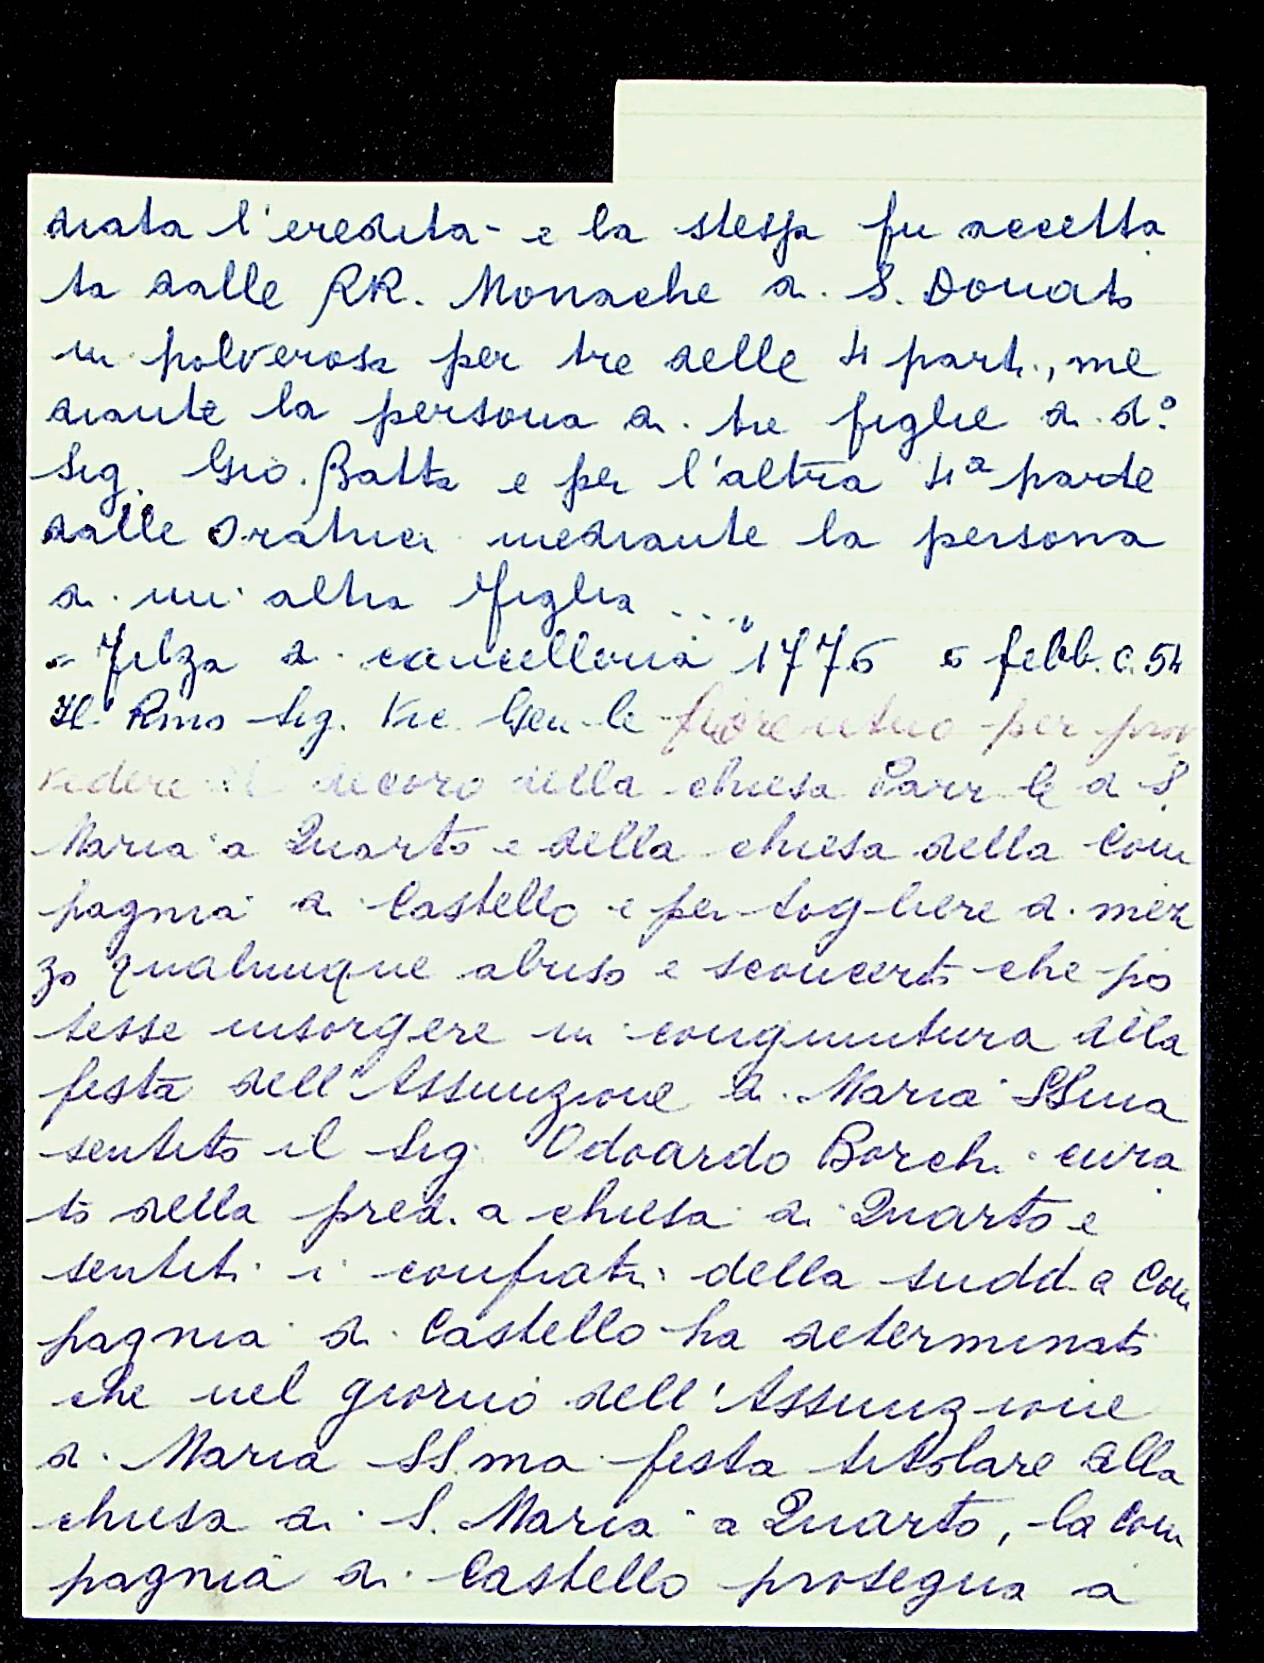 diata l'eredità - e la stessa fu accetta
ta dalle RR. Monache di S. Donato
in polverosa per tre delle 4 parti, me
diante la persona di tre figlie di d.º
Sig. Gio. Batta e per l'altra 4ª parte
dalle Oratrici mediante la persona
di un' altra figlia ...."
"Filza di cancelleria" 1776 6 febb. c. 54
Il Rmo Sig. Vic. Gen-le fiorentino per prov
vedere al decoro della chiesa Parr-le di S.
Maria a Quarto e della chiesa della Com
pagnia di Castello e per togliere di mez
zo qualunque abuso e sconcerto che po
tesse insorgere in congiuntura della
festa dell'Assunzione di Maria SSma
sentito il Sig. Odoardo Borchi cura
to della pred.a chiesa di Quarto e
sentiti i confrati della sudd.a Com
pagnia di Castello ha determinato
che nel giorno dell'Assunzione
di Maria SS.ma festa titolare alla
chiesa di S. Maria a Quarto, la Com
pagnia di Castello prosegua a